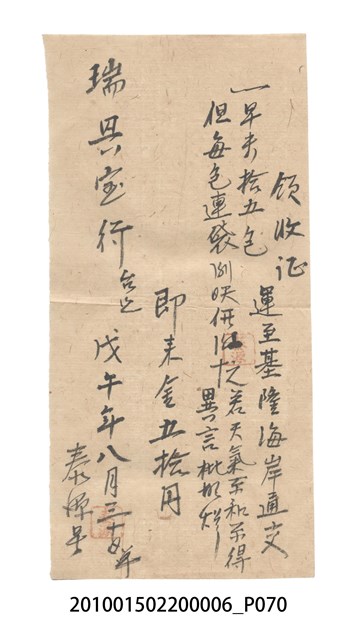 領收証
一早米拾五包 運至基隆海岸通交
但每包連袋 若天氣不和不得
異言批明
即來金五拾円
瑞興宝行台
戊午年八月三十
泰源号
201001502200006_P070